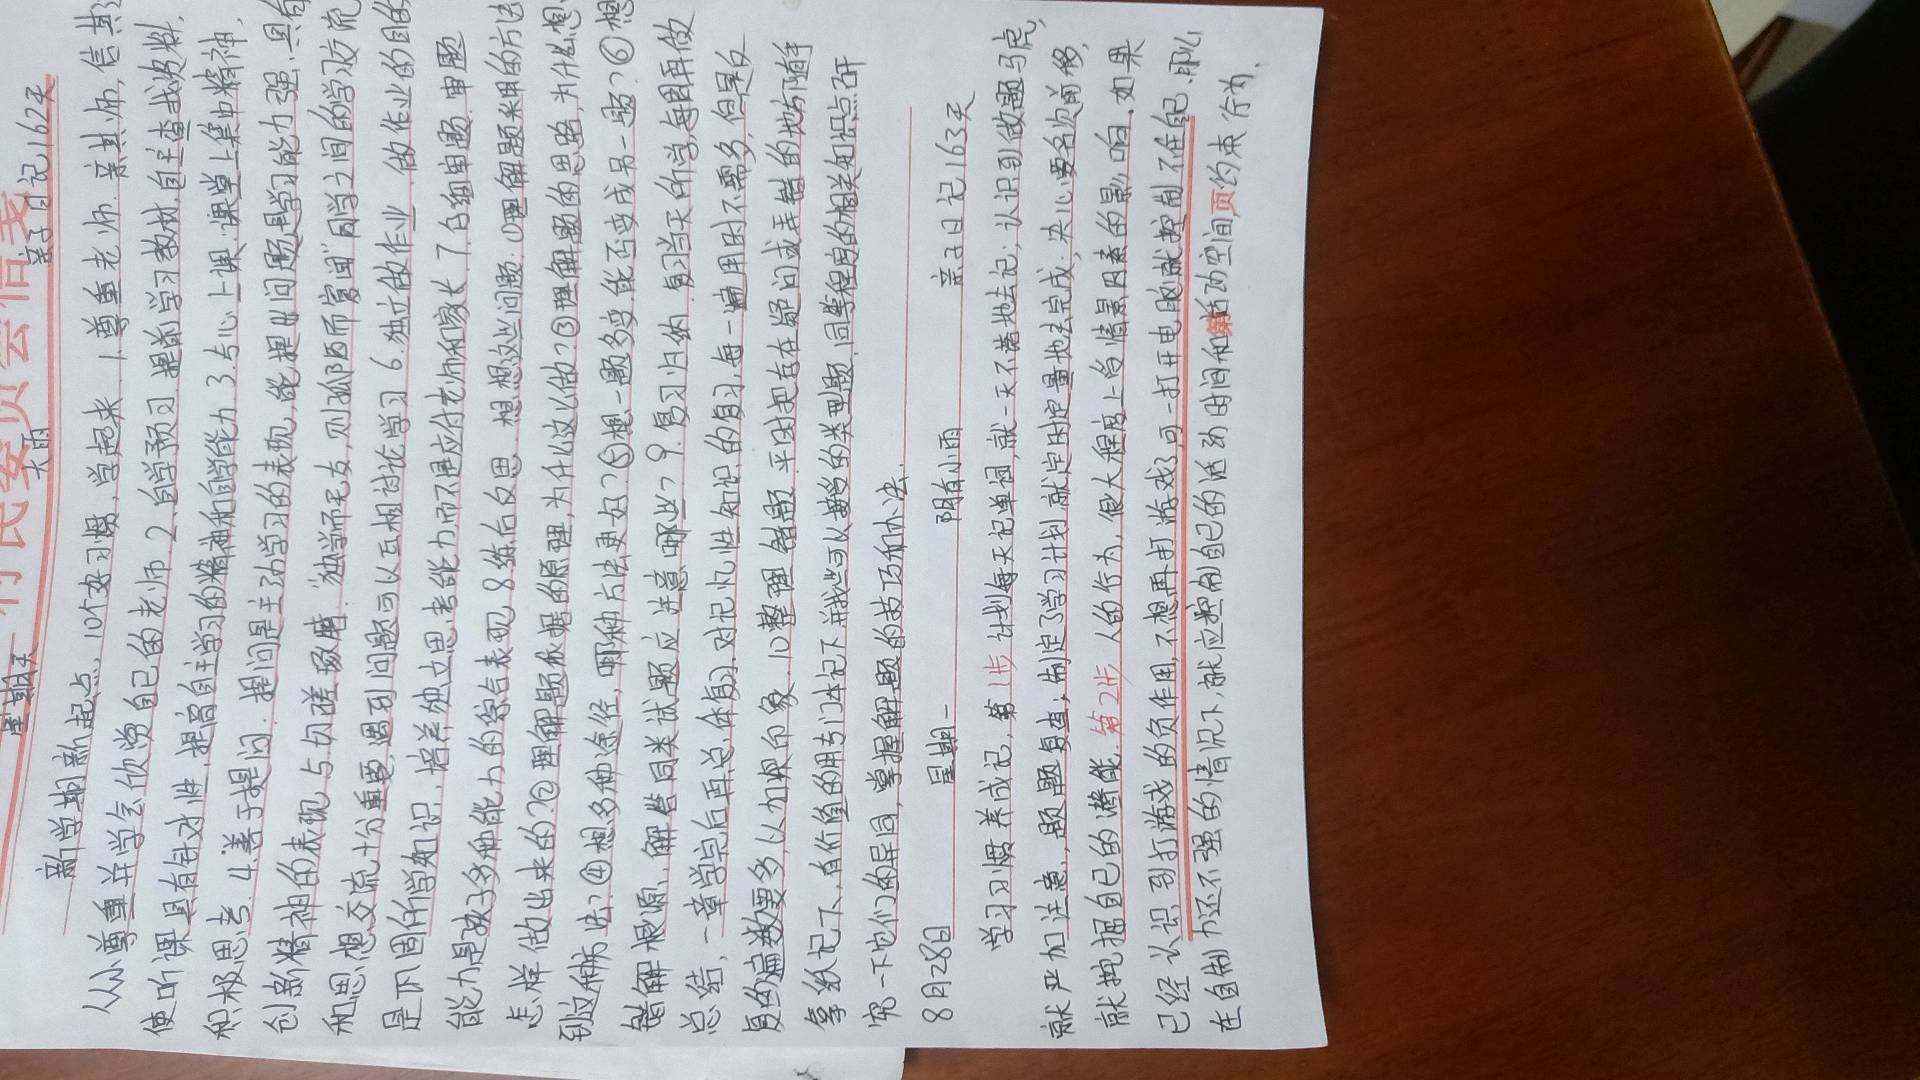 行民委员会信
星期天 大雨 亲子日记162天
新学期新起点，10个好习惯，学起来，1.尊重老师。亲其师，信其
从小尊重并学会欣赏自己的老师。2.自学预习。提前学习教材，自主查找资料，
使听课具有针对性，提高自主学习的精神和自学能力。3.专心上课。课堂上集中精神，
积极思考。4.善于提问。提问是主动学习的表现，能提出问题是学习能力强、具有
创新精神的表现。5.切磋琢磨。“独学而无友，则孤陋而寡闻”同学之间的学习交流
和思想交流十分重要，遇到问题可以互相讨论学习。6.独立做作业。做作业的目的
是巩固所学知识，培养独立思考能力而不是应付老师和家长。7.仔细审题。审题
能力是孩子多种能力的综合表现。8.练后反思。想想这些问题。①理解题采用的方法
怎样做出来的？②理解题依据的原理，为什么这么做？③理解题的思路，为什么想
到这种方法？④想多种途径，哪种方法更好？⑤想一题多变，能否变成另一题？⑥想
错解根源，解答同类试题应注意哪些？9.复习归纳。复习当天所学，每周再做
总结，一章学完后再总体复习，对记忆性知识的复习，每一遍用时不需多，但是反
复的遍数要多，以加深印象。10.整理错题。平时把存在疑问或弄错的地方随手
拿纸记下，有价值的用专门本记下并找些可以类型题，同等程度的相关知识点研
究一下它们的异同，掌握解题的技巧和办法。
8月28日 星期一 阴有小雨 亲子日记163天
学习习惯养成记，第1步 计划每天记单词，就一天不落地去记；认识到做题马虎，
就严加注意，题题复查；制定了学习计划就定时定量地去完成；决心要名次前移，
就挖掘自己的潜能。第2步 人的行为，很大程度上受情景因素的影响，如果
已经认识到打游戏的负作用，不想再打游戏了，可一打开电脑就控制不住自己，那么
在自制力还不强的情况下，就应控制自己的活动时间和活动空间，约束行为。